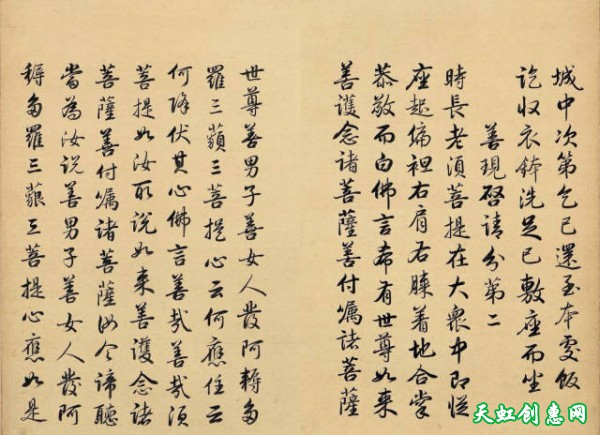 城中次第乞已還至本處飯
訖收衣鉢洗足已敷座而坐
善現啓請分第二
時長老須菩提在大衆中即從
座起偏袒右肩右膝着地合掌
恭敬而白佛言希有世尊如来
善護念諸菩薩善付囑諸菩薩
世尊善男子善女人發阿耨多
羅三藐三菩提心云何應住云
何降伏其心佛言善哉善哉須
菩提如汝所說如来善護念諸
菩薩善付囑諸菩薩汝今諦聽
當為汝說善男子善女人發阿
耨多羅三藐三菩提心應如是
天虹创惠网